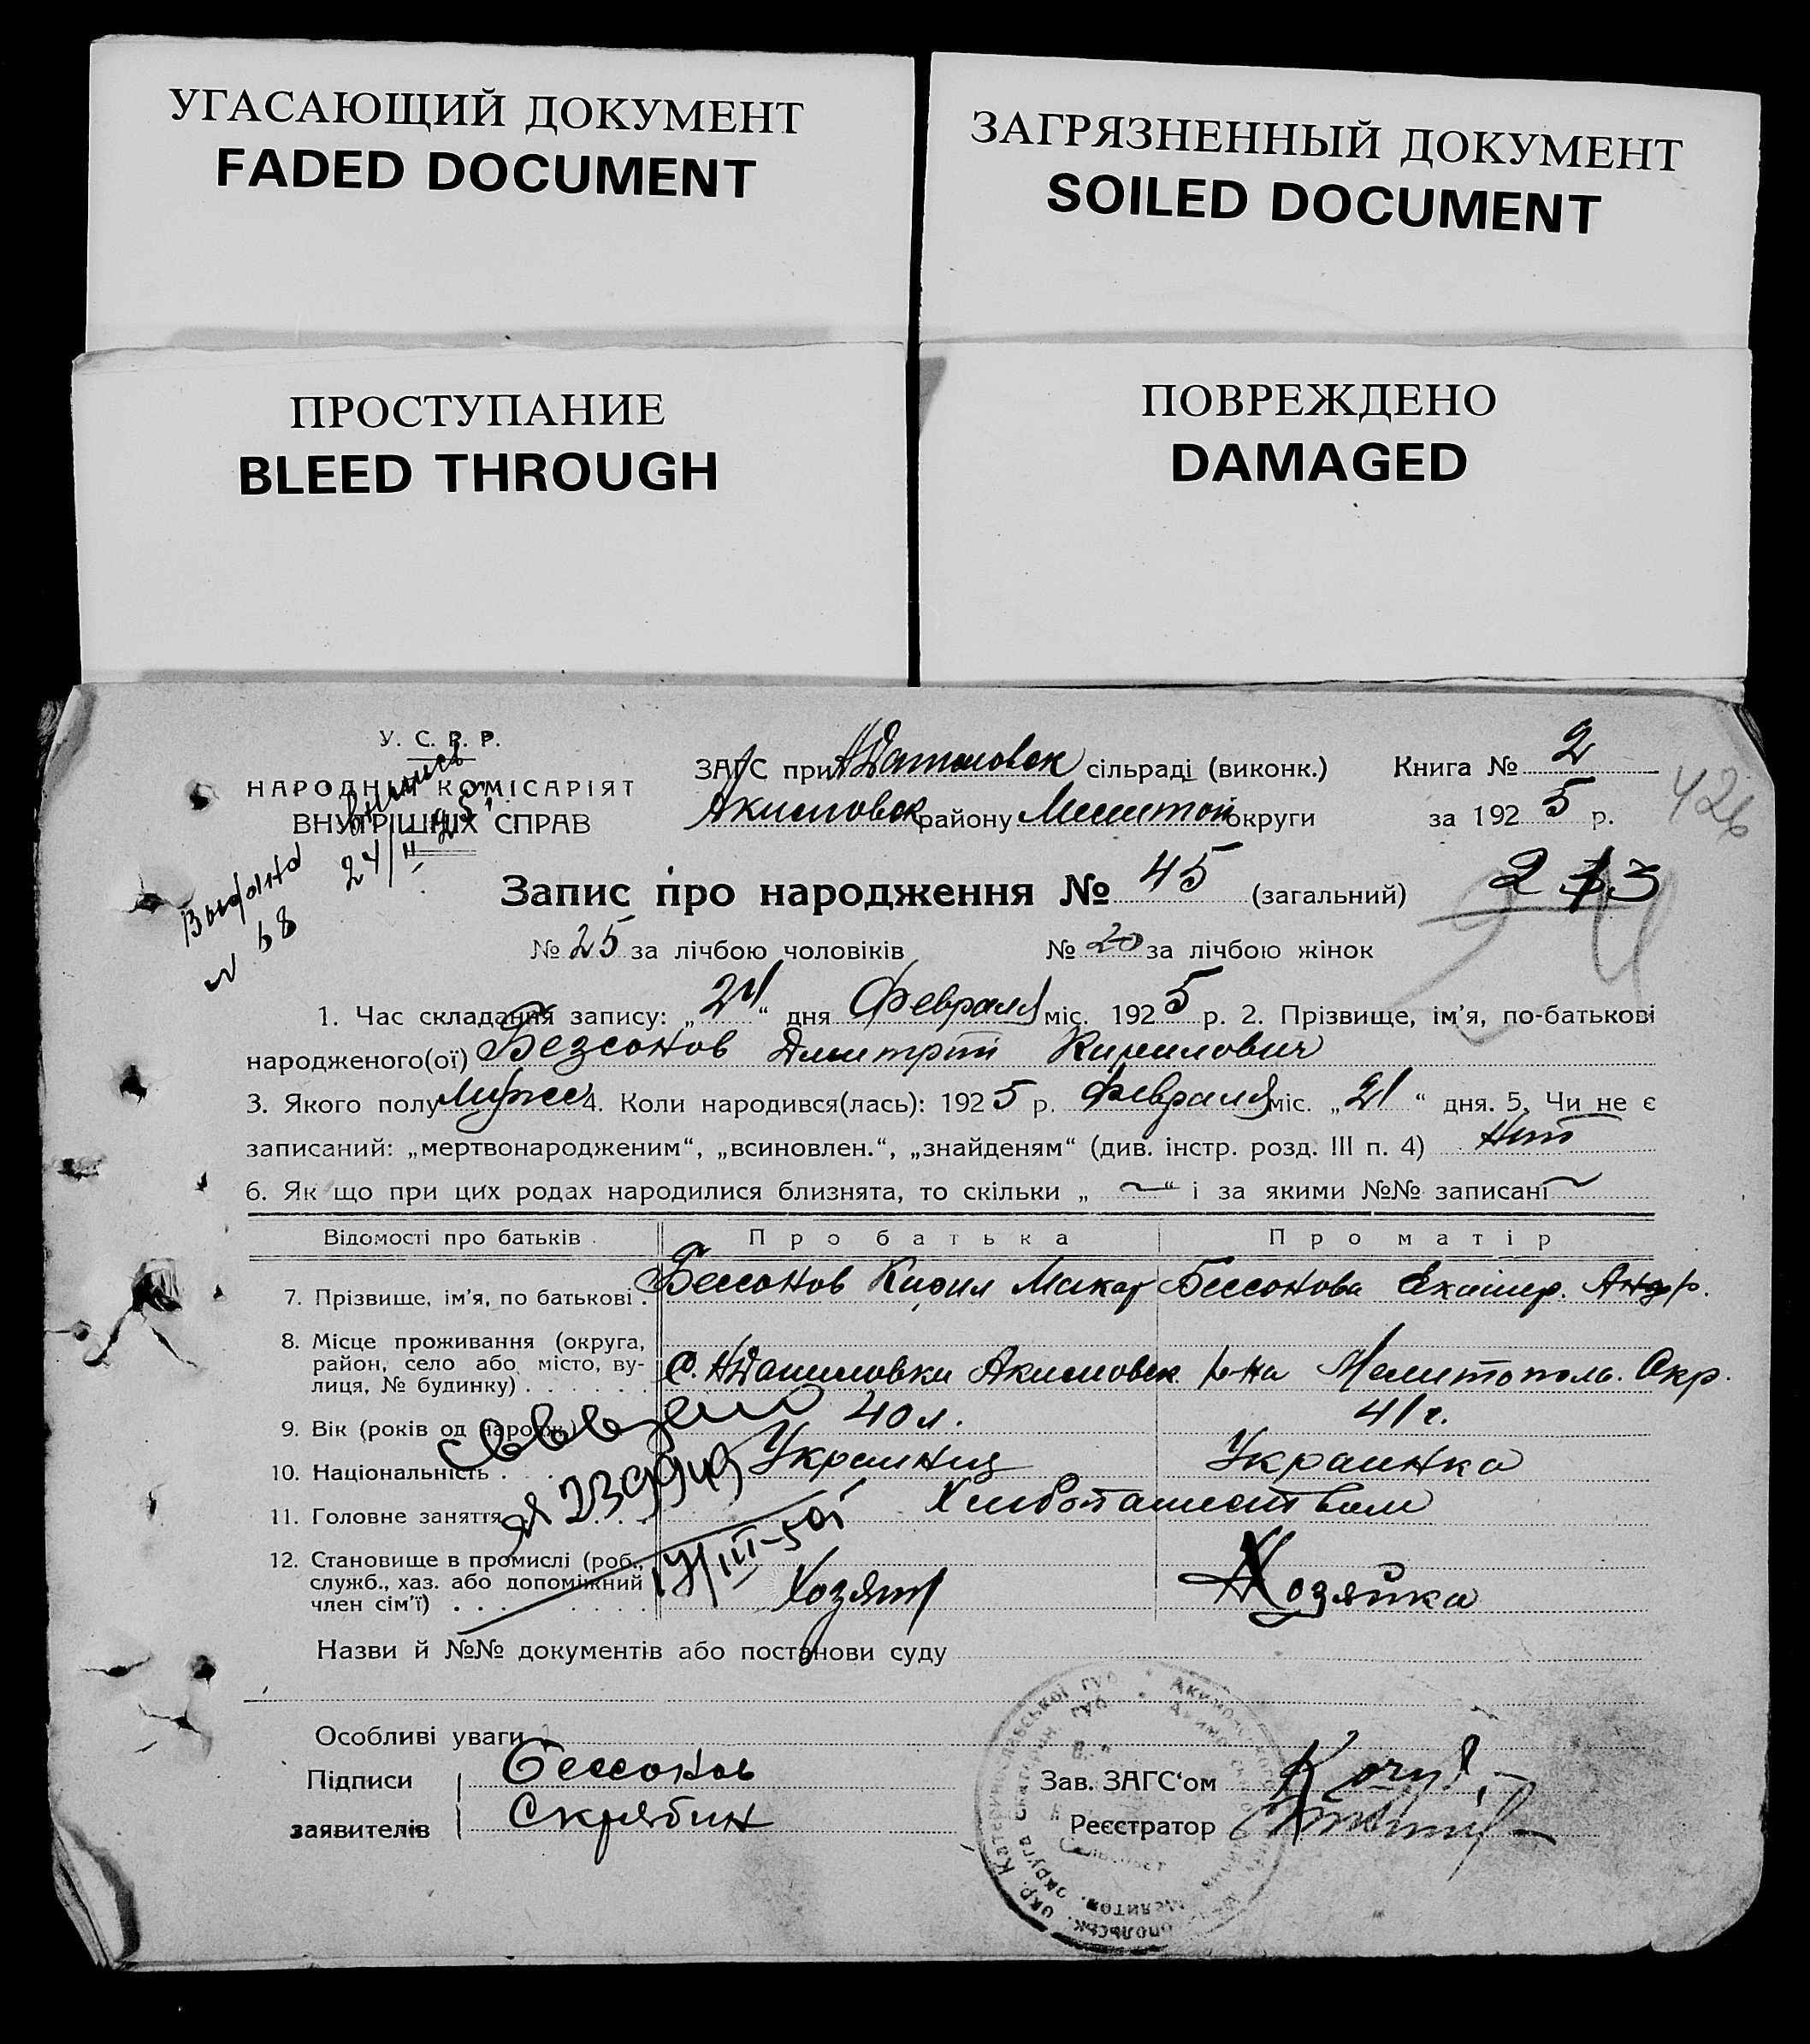 УГАСАЮЩИЙ ДОКУМЕНТ
FADED DOCUMENT
ЗАГРЯЗНЕННЫЙ ДОКУМЕНТ
SOILED DOCUMENT
ПРОСТУПАНИЕ
BLEED THROUGH
ПОВРЕЖДЕНО
DAMAGED
У. С. Р. Р.
НАРОДНИЙ КОМІСАРІЯТ
ВНУТРІШНІХ СПРАВ
Выдана
24/II 25
№ 68
ЗАГС при сільраді (виконк.) Книга № 2
Акимовск району Мелитоп округи за 1925 р.
426
Запис про народження № 45 (загальний)
№ 25 за лічбою чоловіків № 20 за лічбою жінок
1. Час складання запису: „24“ дня Февраля міс. 1925 р. 2. Прізвище, ім'я, по-батькові
народженого(ої) Безсонов Дмитрий Кирилович
3. Якого полу Мужск 4. Коли народився(лась): 1925 р. Февраля міс. „21“ дня. 5. Чи не є
записаний: „мертвонародженим“, „всиновлен.“, „знайденям“ (див. інстр. розд. III п. 4) Нет
6. Як що при цих родах народилися близнята, то скільки „ ~ “ і за якими №№ записані ~
Відомості про батьків Про батька Про матір
7. Прізвище, ім'я, по батькові . Бессонов Кирил Макар Бессонова Екатер. Андр.
8. Місце проживання (округа,
район, село або місто, ву-
лиця, № будинку) . . . . . . с. НДаниловка Акимовск р-на Мелитополь. Окр.
9. Вік (років од народж.) 40 л. 41 г.
10. Національність . Украинец Украинка
11. Головне заняття . . . Хлебопашеством
№ 239949
17/III-50г
12. Становище в промислі (роб.,
служб., хаз. або допоміжний
член сім'ї) . . . Хозяин Хозяйка
Назви й №№ документів або постанови суду
Особливі уваги
Підписи Бессонов Зав. ЗАГС'ом
заявителів Скрябин Реєстратор